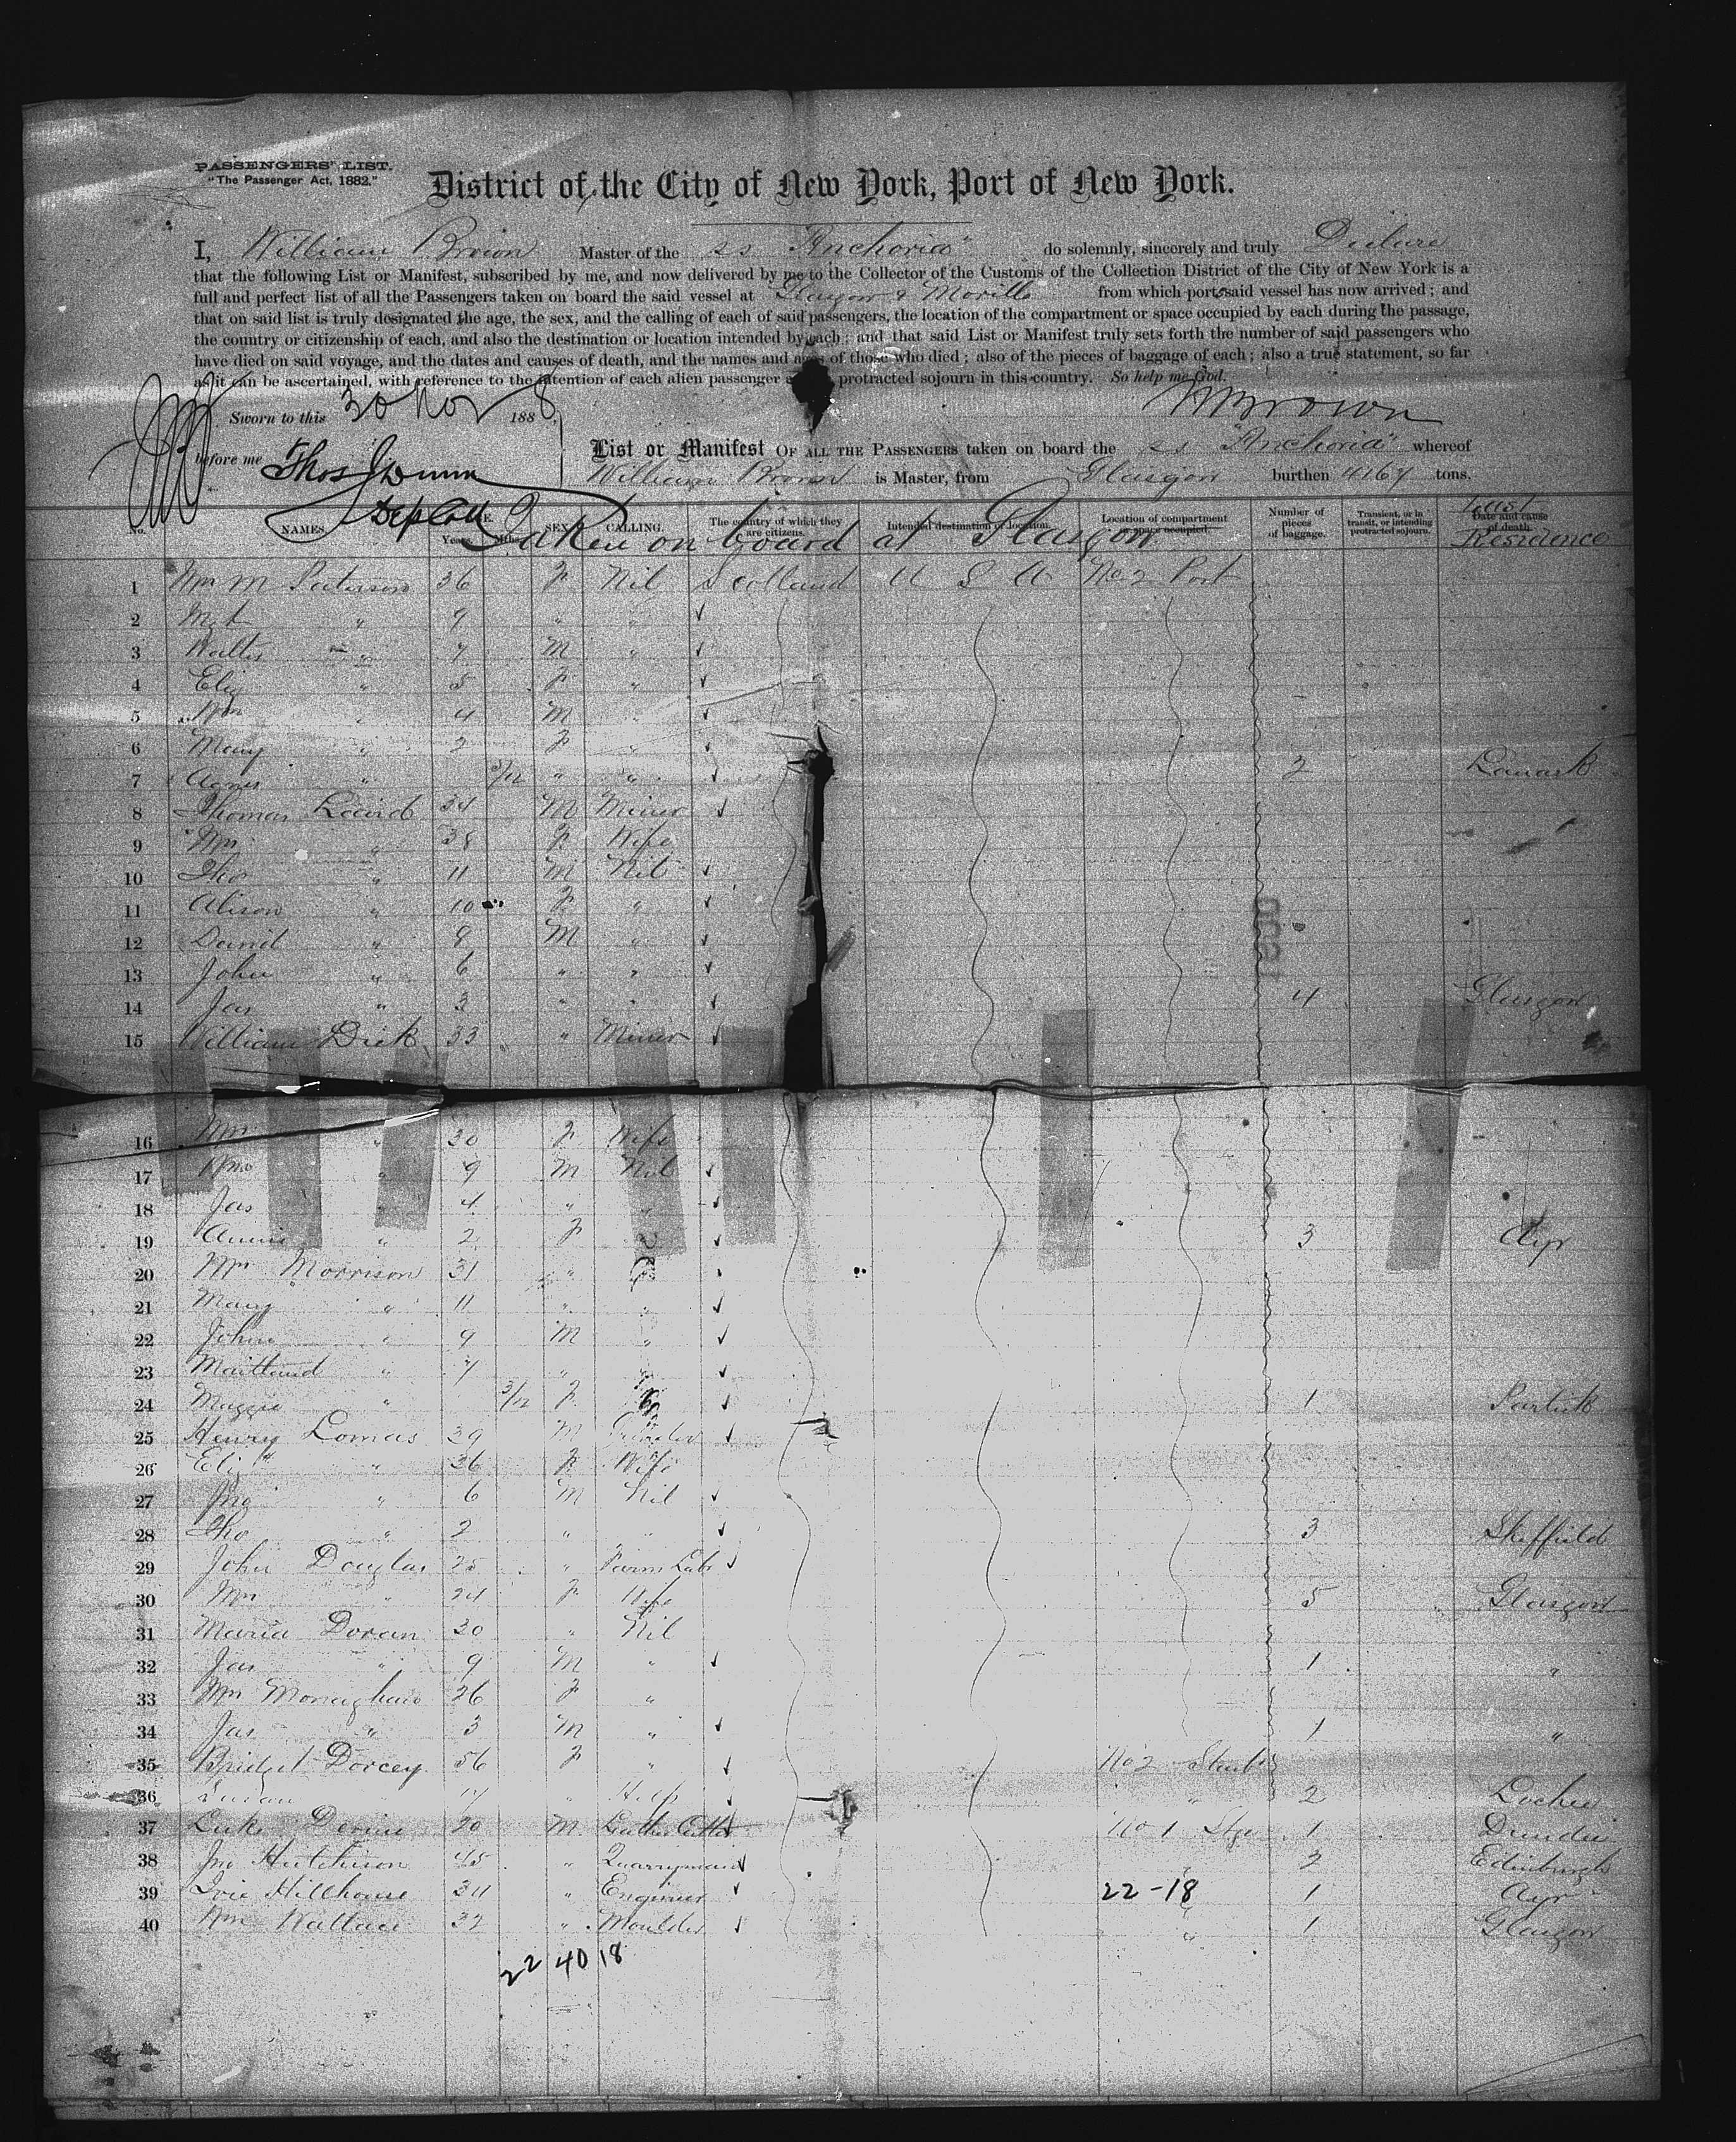 PASSENGERS' LIST.
"The Passenger Act, 1882."
District of the City of New York, Port of New York.
I, William Brown Master of the ss "Anchoria" do solemnly, sincerely and truly Declare
that the following List or Manifest, subscribed by me, and now delivered by me to the Collector of the Customs of the Collection District of the City of New York is a
full and perfect list of all the Passengers taken on board the said vessel at Glasgow & Moville from which ports said vessel has now arrived; and
that on said list is truly designated the age, the sex, and the calling of each of said passengers, the location of the compartment or space occupied by each during the passage,
the country or citizenship of each, and also the destination or location intended by each; and that said List or Manifest truly sets forth the number of said passengers who
have died on said voyage, and the dates and causes of death, and the names and ages of those who died; also of the pieces of baggage of each; also a true statement, so far
as it can be ascertained, with reference to the intention of each alien passenger protracted sojourn in this country. So help me God.
Sworn to this 30 Nov 1888, WBrown
before me Thos J Dunn
Dep Coll
List or Manifest OF ALL THE PASSENGERS taken on board the ss "Anchoria" whereof
William Brown is Master, from Glasgow burthen 4167 tons.
No. NAMES. Years. Mths. SEX. CALLING. The country of which they are citizens. Intended destination or location. Location of compartment or space occupied. Number of pieces of baggage. Transient, or in transit, or intending protracted sojourn. Date and cause of death. Residence
Taken on board at Glasgow
1 Mrs M Paterson 36 F Nil Scotland U S A No 2 Port
2 Mgt " 9 " "
3 Walter " 7 M "
4 Eliz " 5 F "
5 Wm " 4 M "
6 Mary " 2 F "
7 Agnes " /12 " " 2 Lanark
8 Thomas Laird 34 M Miner
9 Mrs " 38 F Wife
10 Tho " 11 M Nil
11 Alison " 10 F "
12 David " 8 M "
13 John " 6 " "
14 Jas " 3 " " 4 Glasgow
15 William Dick 33 " Miner
16 Mrs " 30 F Wife
17 Wm " 9 M Nil
18 Jas " 4 " "
19 Annie " 2 F " 3 Ayr
20 Mrs Morrison 31 "
21 Mary " 11 " "
22 John " 9 M "
23 Maitland " 7 " "
24 Maggie " 3/12 F 1 Partick
25 Henry Lomas 39 M
26 Eliz " 36 F Wife
27 Jno " 6 M Nil
28 Tho " 2 " " 3 Sheffield
29 John Douglas 25 " Farm Lab
30 Mrs " 24 F Wife 5 Glasgow
31 Maria Doran 30 " Nil
32 Jas " 9 M " 1 "
33 Mrs Monaghan 26 F "
34 Jas " 3 M " 1 "
35 Bridget Dorcey 56 F " No 2 Starb
36 Susan " 17 " Help " 2 Lochee
37 Luke Devine 20 M Leather Cutter No 1 Stge 1 Dundee
38 Jno Hutchison 45 " Quarryman " 2 Edinburgh
39 Ivie Hillhouse 34 " Engineer 22-18 1 Ayr
40 Wm Wallace 32 " Moulder " 1 Glasgow
22 40 18